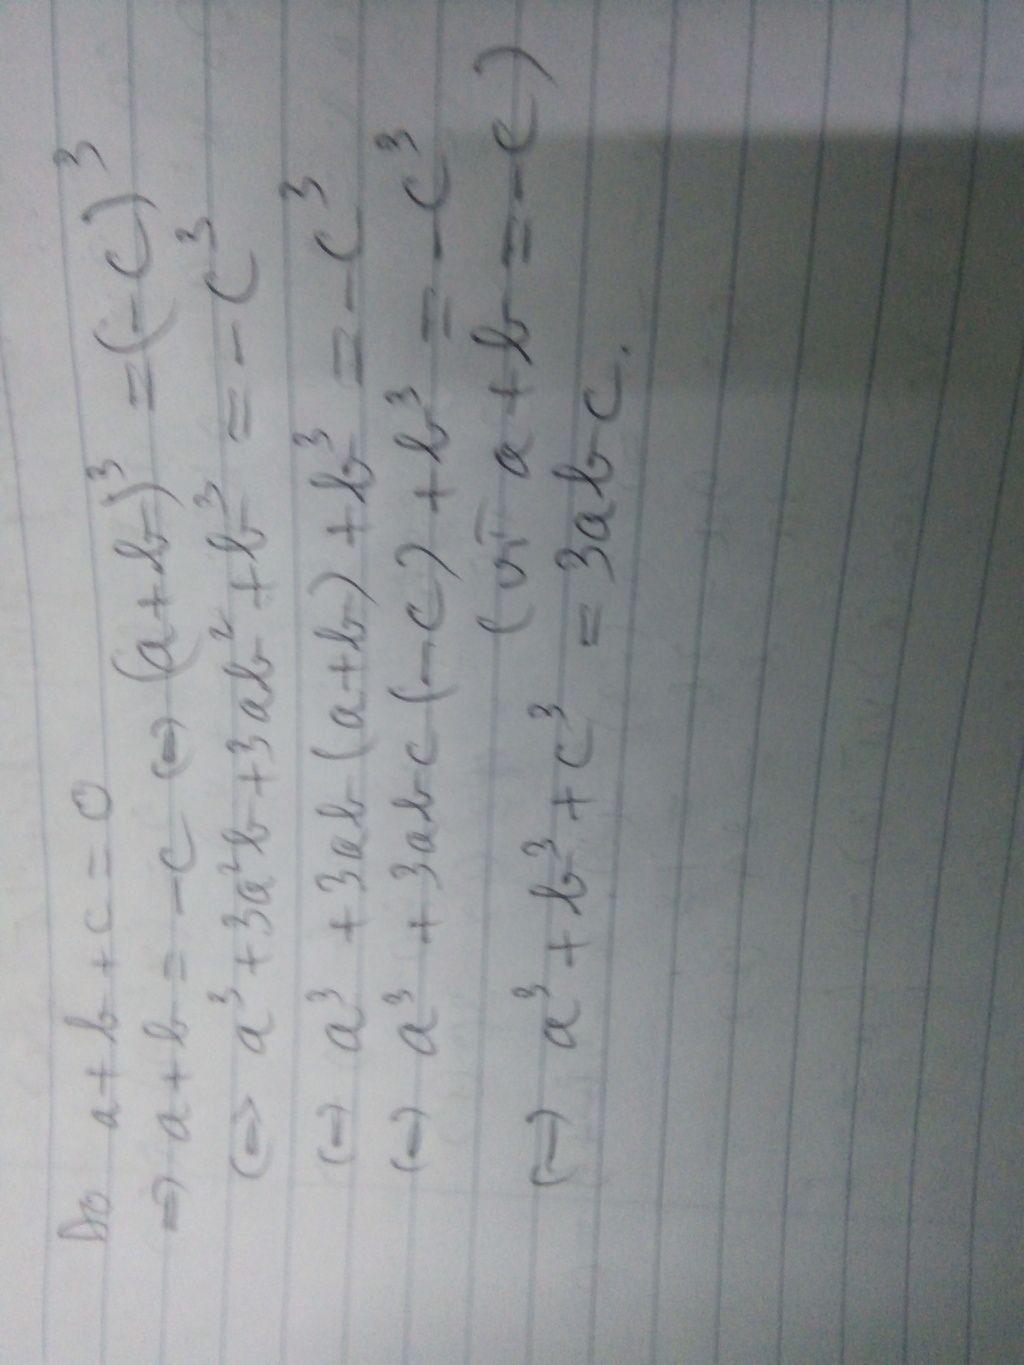 Do a + b + c = 0
⇒ a + b = -c ⇔ (a + b)³ = (-c)³
⇔ a³ + 3a²b + 3ab² + b³ = -c³
⇔ a³ + 3ab(a + b) + b³ = -c³
⇔ a³ + 3abc(-c) + b³ = -c³
(vì a + b = -c)
⇔ a³ + b³ + c³ = 3abc.